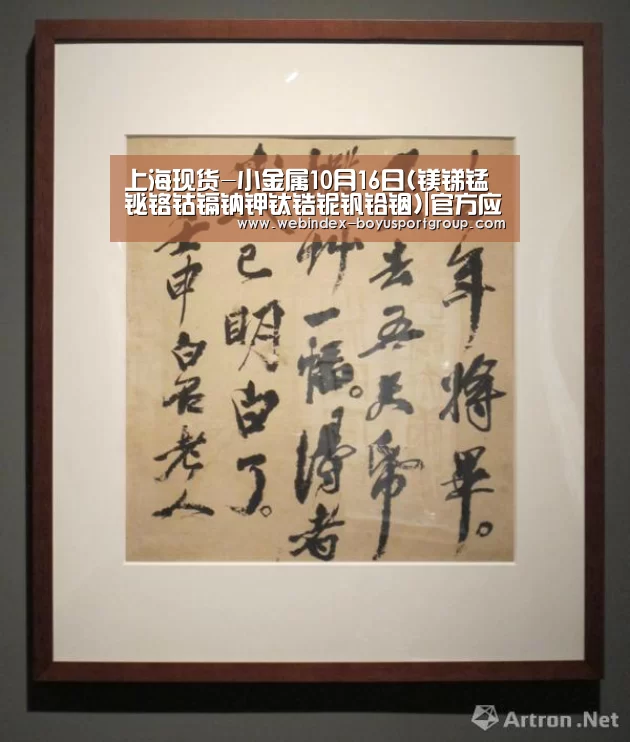 上海现货-小金属10月16日(镁锑锰
铋铬钴镉钠钾钛锆铌钒铪铟)|官方应
www.webindex-boyusportgroup.com
年将毕。
去五天
一幅。得者
已明白了。
壬申白石老人
Artron.Net